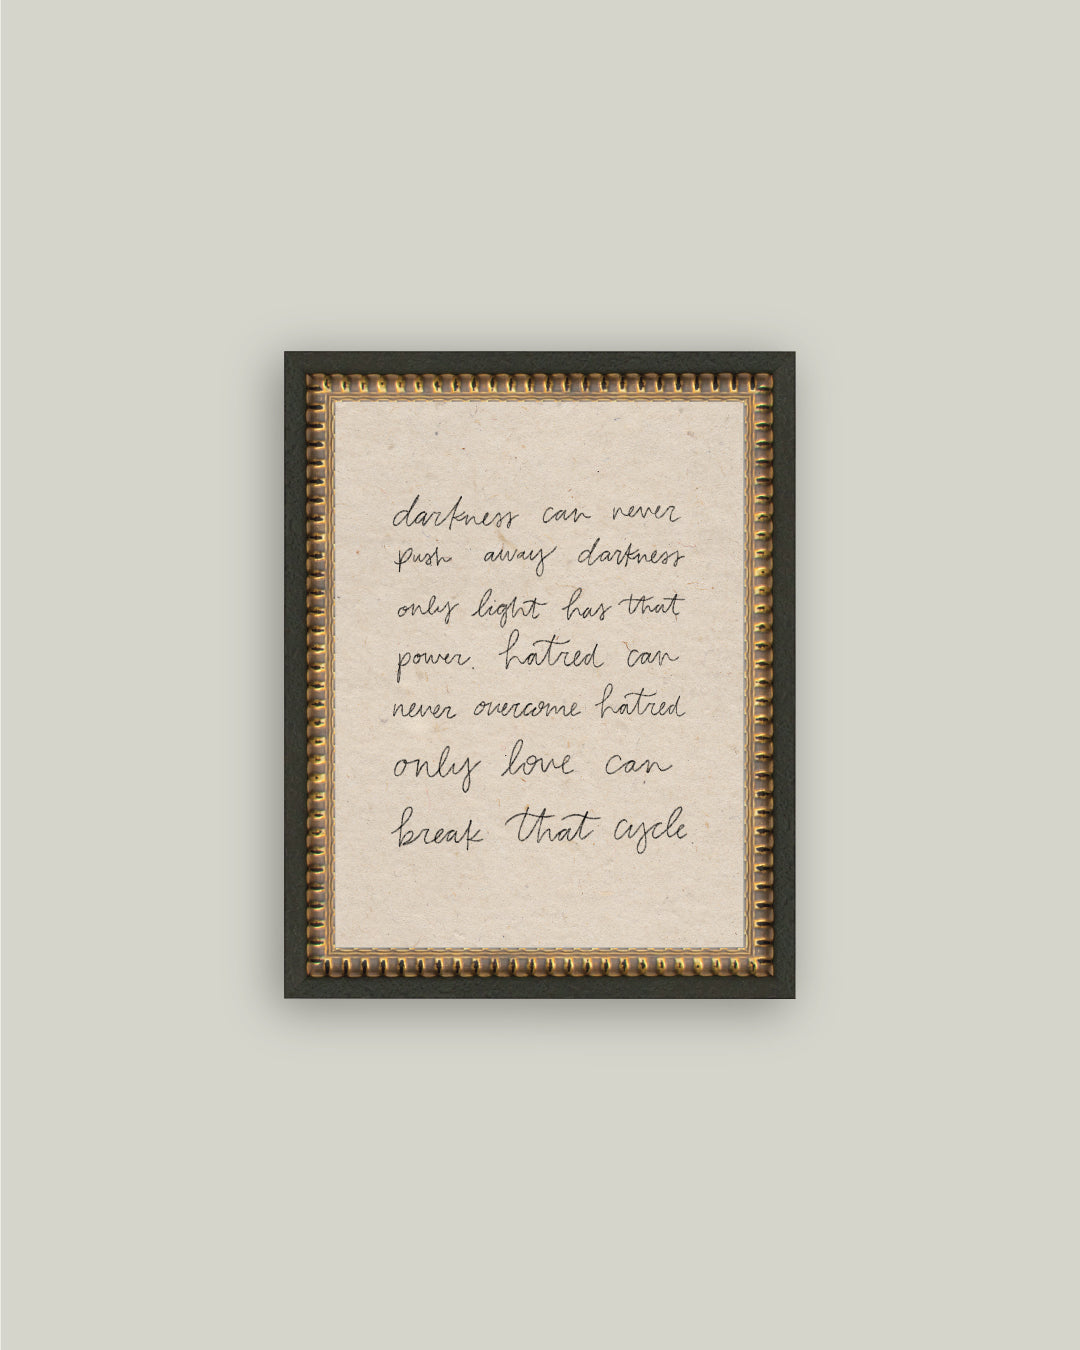 darkness can never
push away darkness
only light has that
power. hatred can
never overcome hatred
only love can
break that cycle